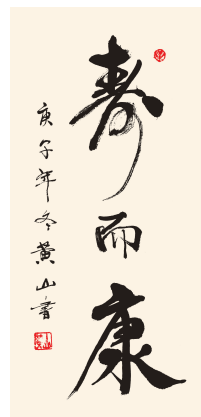 寿而康
庚子年冬黄山书